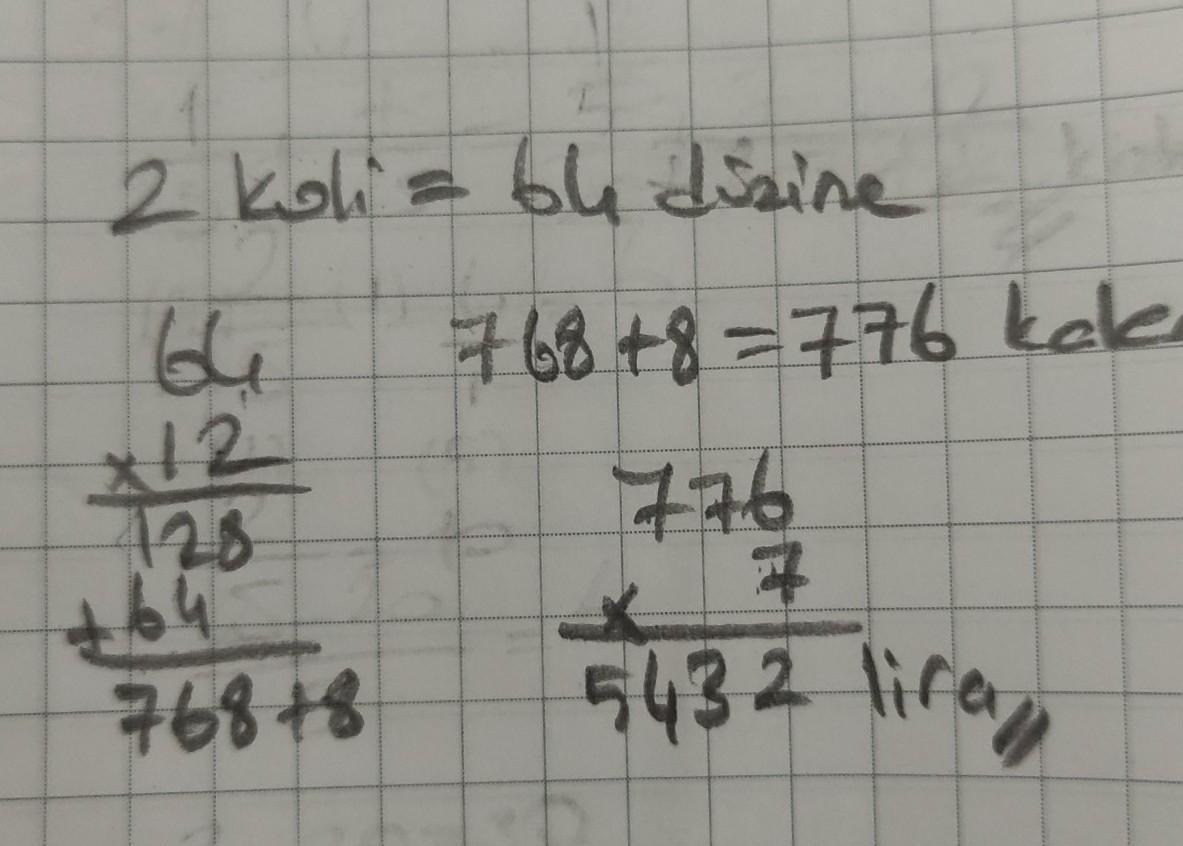 2 koli = 64 düzine
64
x12
128
+64
768+8
768+8=776
776
x 7
5432 lira